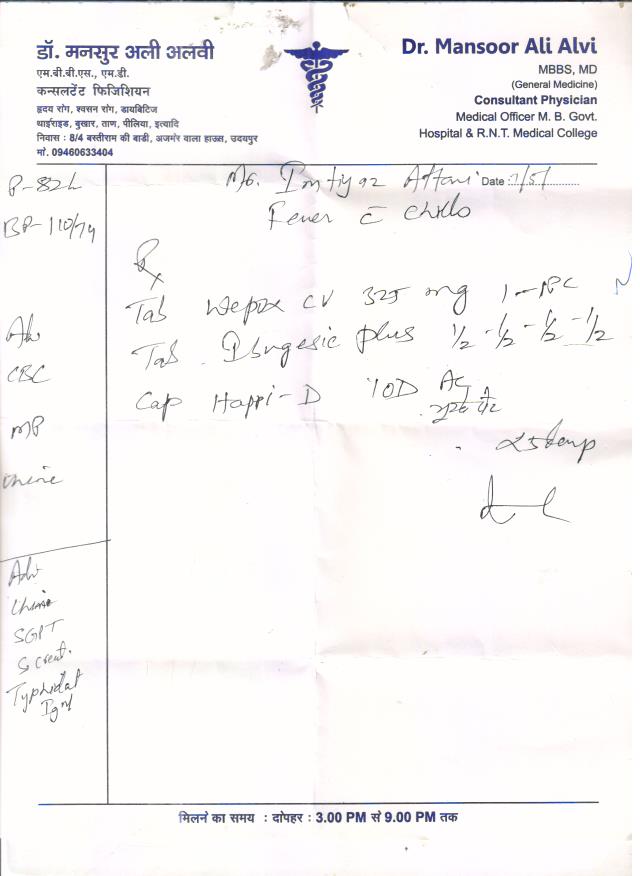 डॉ. मनसुर अली अलवी
एम.बी.बी.एस., एम.डी.
कन्सलटेंट फिजिशियन
हृदय रोग, श्वसन रोग, डायबिटिज
थाईराइड, बुखार, ताण, पीलिया, इत्यादि
निवास : 8/4 बस्तीराम की बाडी, अजमेर वाला हाऊस, उदयपुर
मो. 09460633404
Dr. Mansoor Ali Alvi
MBBS, MD
(General Medicine)
Consultant Physician
Medical Officer M. B. Govt.
Hospital & R.N.T. Medical College
Date
Fever c̄ chills
P-82/
BP-110/74
Rx
Tab Wepox CV 325 mg 1-
Tab Ibugesic plus 1/2 - 1/2 - 1/2 - 1/2
Cap Happi-D 10D AC
x 5 days
CBC
MP
Urine
Adv
Urine
SGPT
S Creat.
Typhidot
IgM
मिलने का समय : दोपहर : 3.00 PM से 9.00 PM तक